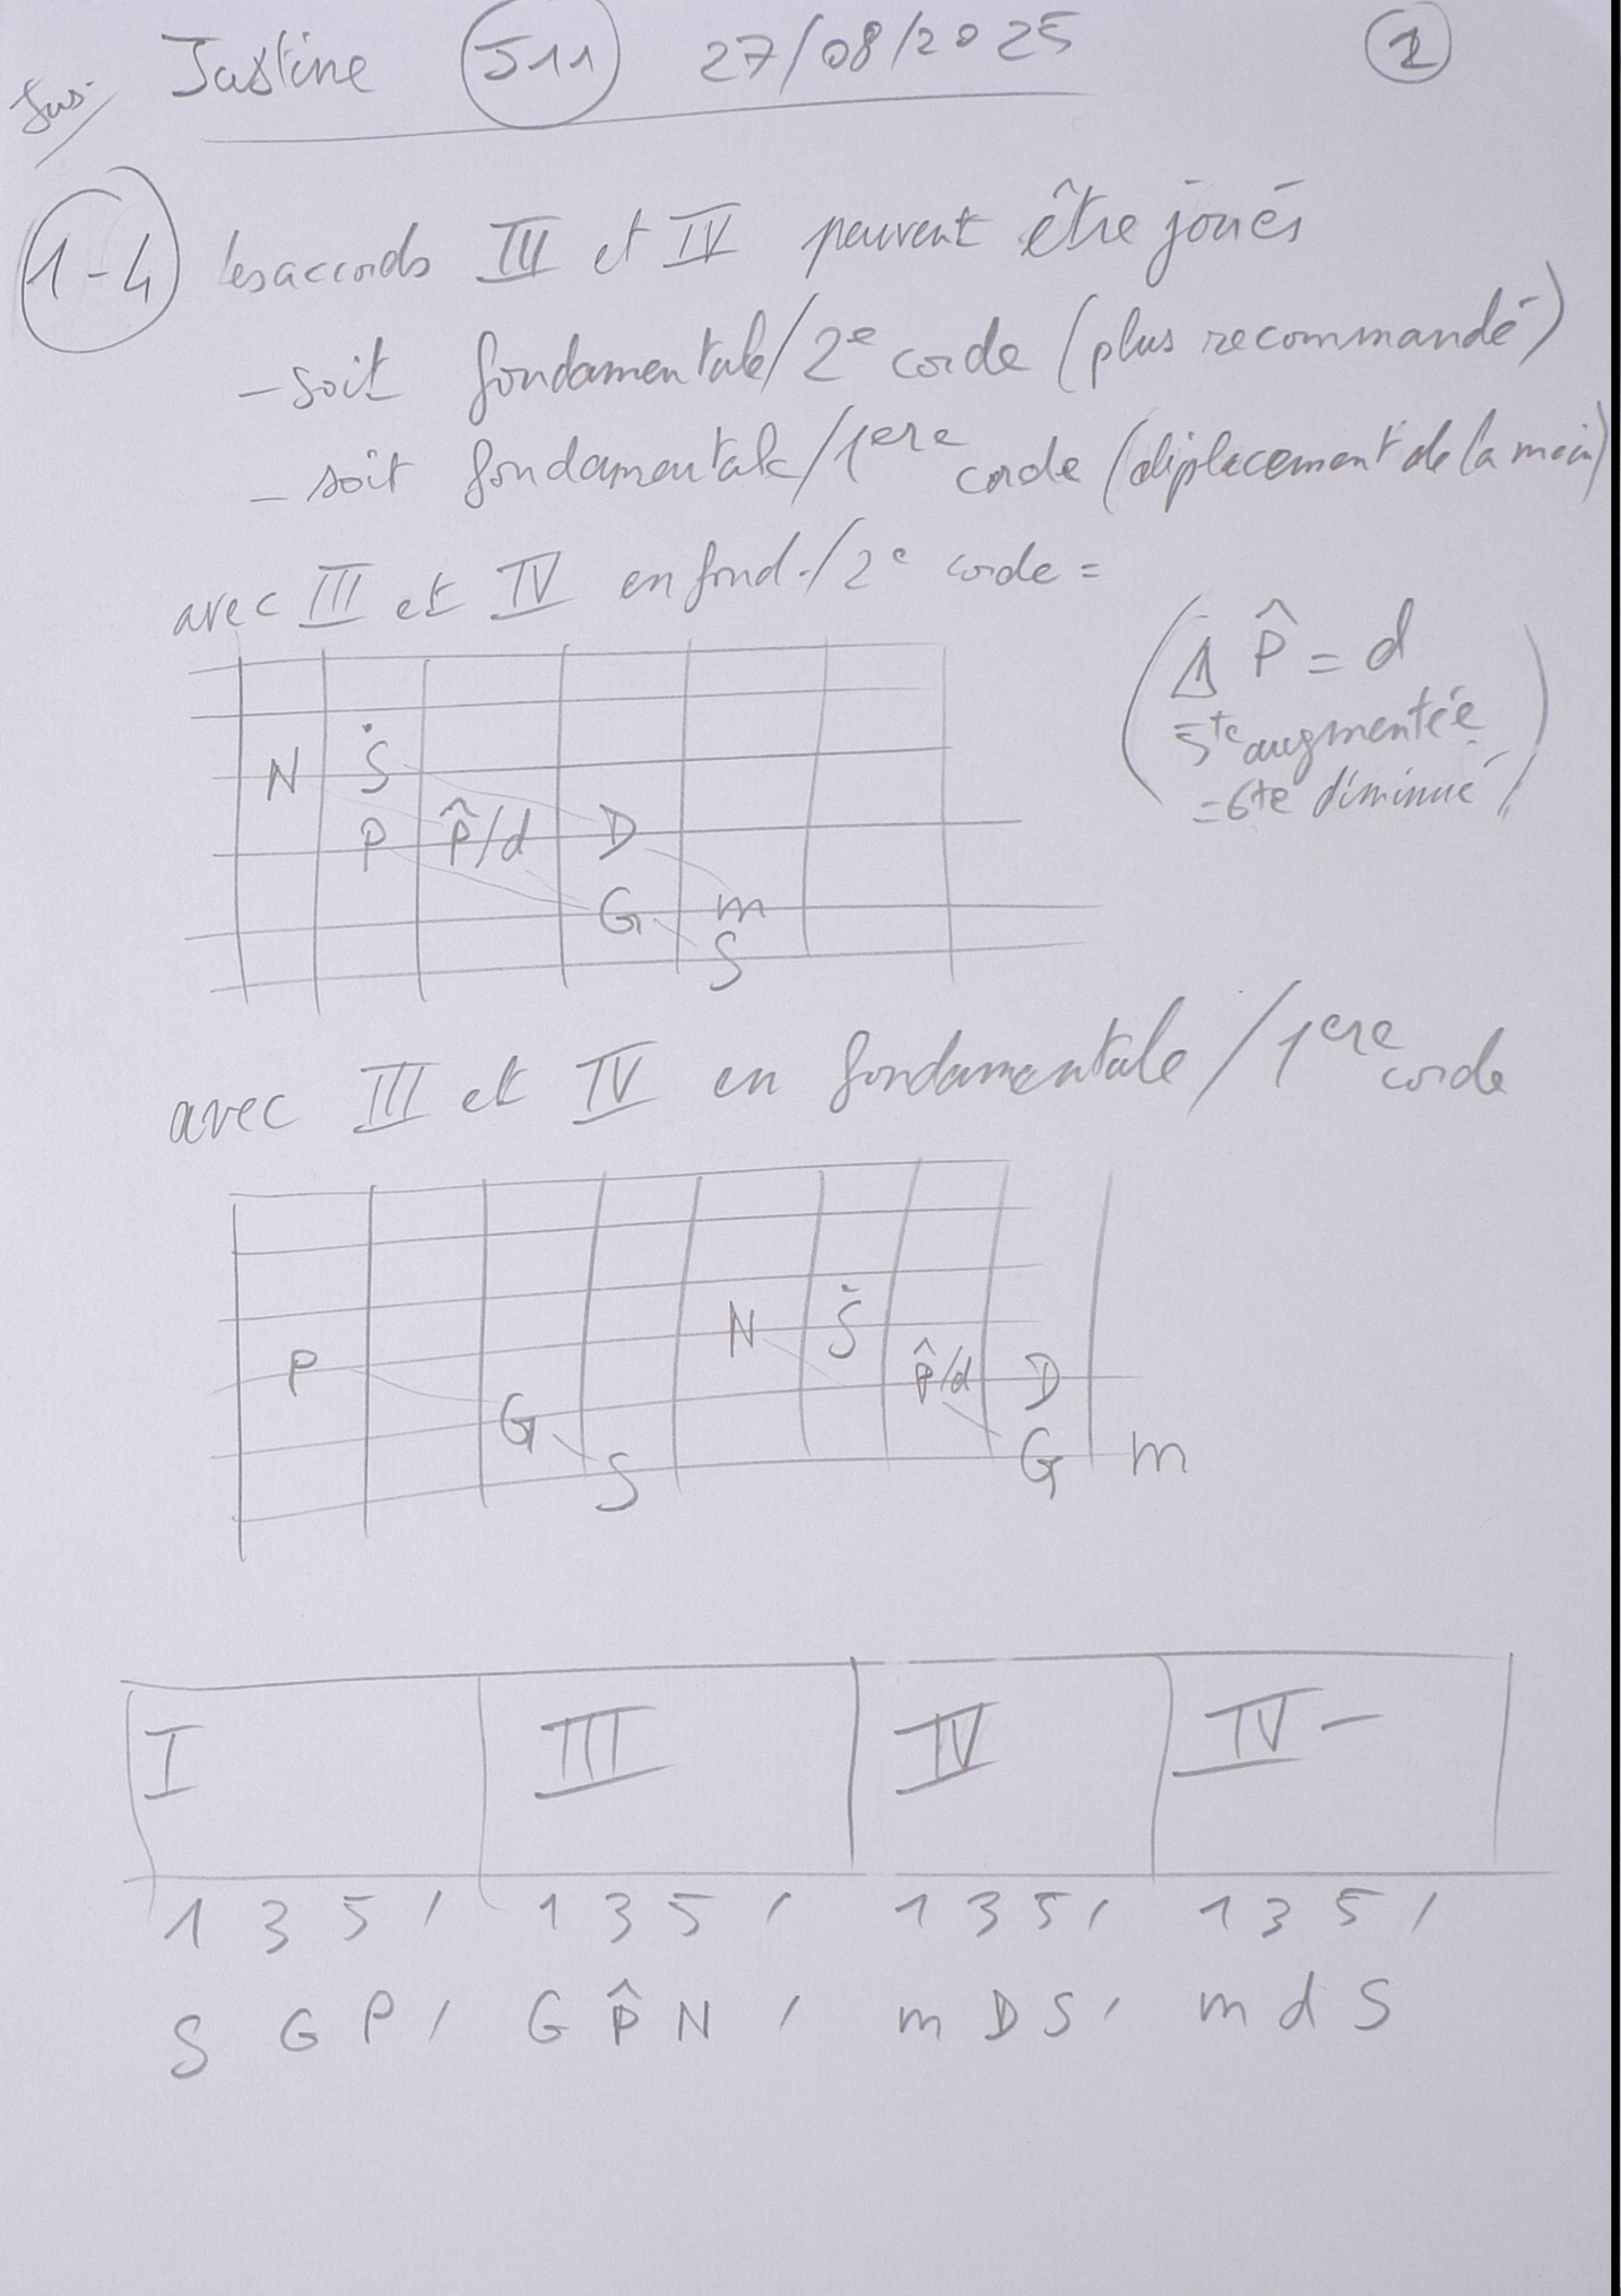 Jus. Justine J11 27/08/2025 2
1-4 les accords III et IV peuvent être joués
- soit fondamentale/2e corde (plus recommandé)
- soit fondamentale/1ere corde (déplacement de la main)
avec III et IV en fond./2e corde =
(⚠ P̂ = d
= 5te augmentée
= 6te diminué)
N Ṡ
P P̂/d D
G m
S
avec III et IV en fondamentale/1ere corde
N Ṡ
P P̂/d D
G G m
S
I III IV IV-
1 3 5 / 1 3 5 / 1 3 5 / 1 3 5 /
S G P / G P̂ N / m D S / m d S